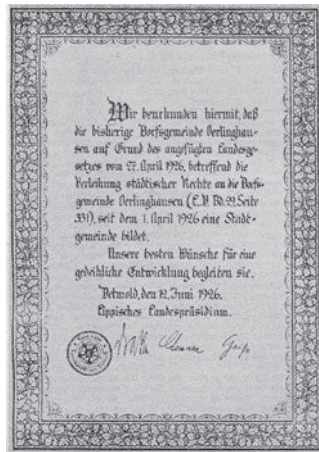 Wir beurkunden hiermit, daß
die bisherige Dorfgemeinde Oerlinghau-
sen auf Grund des angefügten Landesge-
setzes vom 27. April 1926, betreffend die
Verleihung städtischer Rechte an die Dorf-
gemeinde Oerlinghausen (L.V. Bd. 29 Seite
331), seit dem 1. April 1926 eine Stadt-
gemeinde bildet.
Unsere besten Wünsche für eine
gedeihliche Entwicklung begleiten sie.
Detmold, den 12. Juni 1926.
Lippisches Landespräsidium.